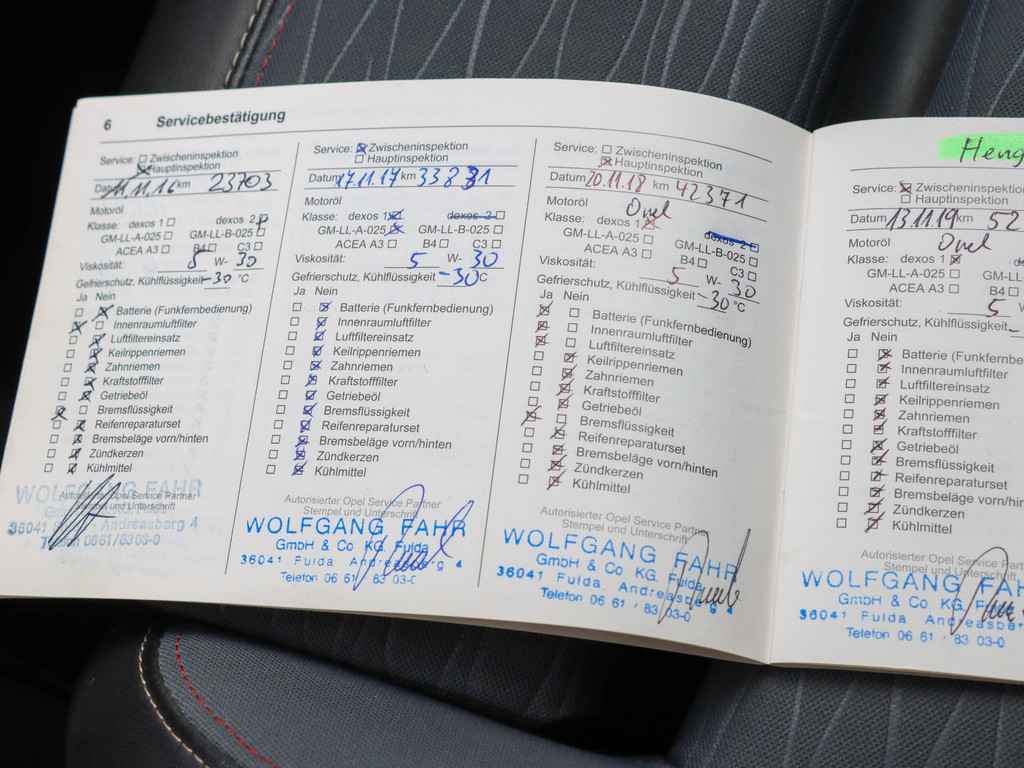 6 Servicebestätigung
Service: Zwischeninspektion
Hauptinspektion
Datum 11.11.16 km 23703
Motoröl
Klasse: dexos 1 dexos 2
GM-LL-A-025 GM-LL-B-025
ACEA A3 B4 C3
Viskosität: 5 W- 30
Gefrierschutz, Kühlflüssigkeit -30 °C
Ja Nein
Batterie (Funkfernbedienung)
Innenraumluftfilter
Luftfiltereinsatz
Keilrippenriemen
Zahnriemen
Kraftstofffilter
Getriebeöl
Bremsflüssigkeit
Reifenreparaturset
Bremsbeläge vorn/hinten
Zündkerzen
Kühlmittel
Autorisierter Opel Service Partner
Stempel und Unterschrift
WOLFGANG FAHR
36041 Andreasberg 4
Telefon 0661/8303-0
Service: Zwischeninspektion
Hauptinspektion
Datum 17.11.17 km 33831
Motoröl
Klasse: dexos 1 dexos 2
GM-LL-A-025 GM-LL-B-025
ACEA A3 B4 C3
Viskosität: 5 W- 30
Gefrierschutz, Kühlflüssigkeit -30 °C
Ja Nein
Batterie (Funkfernbedienung)
Innenraumluftfilter
Luftfiltereinsatz
Keilrippenriemen
Zahnriemen
Kraftstofffilter
Getriebeöl
Bremsflüssigkeit
Reifenreparaturset
Bremsbeläge vorn/hinten
Zündkerzen
Kühlmittel
Autorisierter Opel Service Partner
Stempel und Unterschrift
WOLFGANG FAHR
GmbH & Co. KG. Fulda
36041 Fulda Andreasberg 4
Telefon 06 61 / 83 03-0
Service: Zwischeninspektion
Hauptinspektion
Datum 20.11.18 km 42371
Motoröl Opel
Klasse: dexos 1 dexos 2
GM-LL-A-025 GM-LL-B-025
ACEA A3 B4 C3
Viskosität: 5 W- 30
Gefrierschutz, Kühlflüssigkeit -30 °C
Ja Nein
Batterie (Funkfernbedienung)
Innenraumluftfilter
Luftfiltereinsatz
Keilrippenriemen
Zahnriemen
Kraftstofffilter
Getriebeöl
Bremsflüssigkeit
Reifenreparaturset
Bremsbeläge vorn/hinten
Zündkerzen
Kühlmittel
Autorisierter Opel Service Partner
Stempel und Unterschrift
WOLFGANG FAHR
GmbH & Co. KG. Fulda
36041 Fulda, Andreasberg 4
Telefon 06 61 / 83 03-0
Heng
Service: Zwischeninspektion
Hauptinspektion
Datum 13.11.19 km 52
Motoröl Opel
Klasse: dexos 1
GM-LL-A-025 GM-LL
ACEA A3 B4
Viskosität: 5
Gefrierschutz, Kühlflüssigkeit -
Ja Nein
Batterie (Funkfernbe
Innenraumluftfilter
Luftfiltereinsatz
Keilrippenriemen
Zahnriemen
Kraftstofffilter
Getriebeöl
Bremsflüssigkeit
Reifenreparaturset
Bremsbeläge vorn/hin
Zündkerzen
Kühlmittel
Autorisierter Opel Service
Stempel und Unterschrift
WOLFGANG FAH
GmbH & Co. KG. Fulda
36041 Fulda Andreasber
Telefon 06 61 / 83 03-0